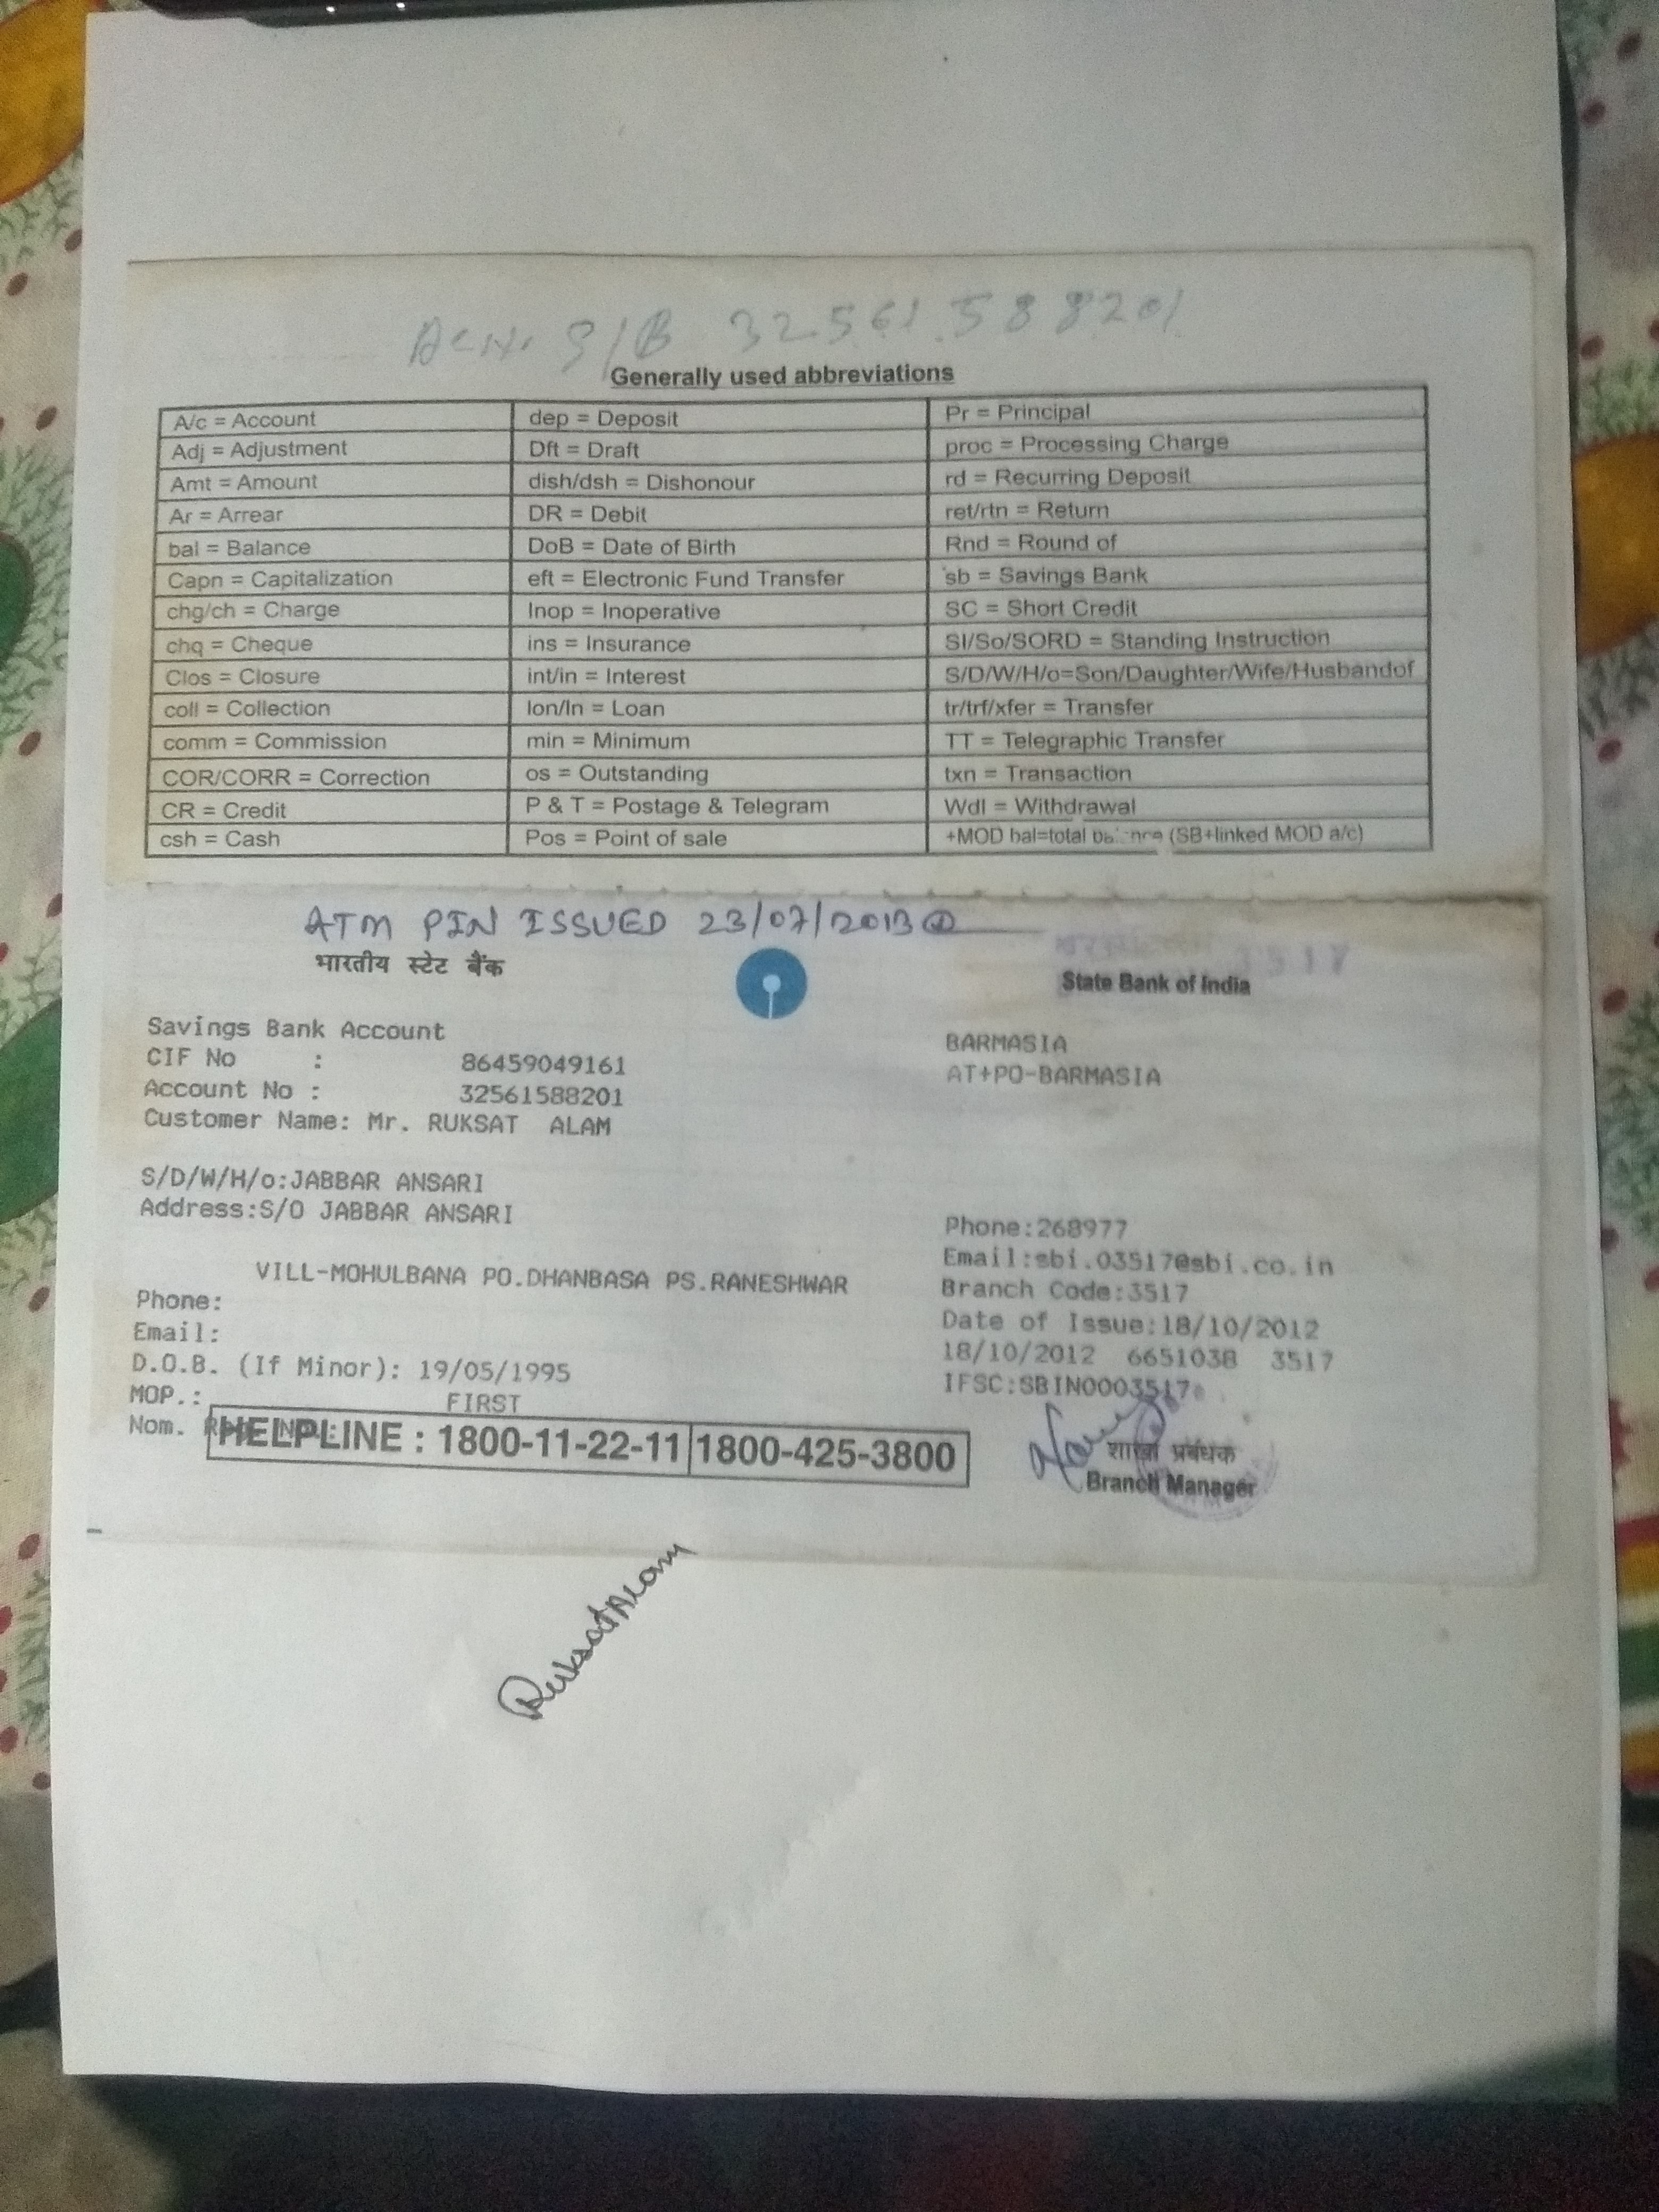 Generally used abbreviations
A/c = Account
Adj = Adjustment
Amt = Amount
Ar = Arrear
bal = Balance
Capn = Capitalization
chg/ch = Charge
chq = Cheque
Clos = Closure
coll = Collection
comm = Commission
COR/CORR = Correction
CR = Credit
csh = Cash
dep = Deposit
Dft = Draft
dish/dsh = Dishonour
DR = Debit
DoB = Date of Birth
eft = Electronic Fund Transfer
Inop = Inoperative
ins = Insurance
int/in = Interest
lon/ln = Loan
min = Minimum
os = Outstanding
P & T = Postage & Telegram
Pos = Point of sale
Pr = Principal
proc = Processing Charge
rd = Recurring Deposit
ret/rtn = Return
Rnd = Round of
sb = Savings Bank
SC = Short Credit
SI/So/SORD = Standing Instruction
S/D/W/H/o=Son/Daughter/Wife/Husbandof
tr/trf/xfer = Transfer
TT = Telegraphic Transfer
txn = Transaction
Wdl = Withdrawal
+MOD bal=total (SB+linked MOD a/c)
S/B 32561588201
ATM PIN ISSUED 23/07/2013
भारतीय स्टेट बैंक
3517
State Bank of India
Savings Bank Account
CIF No : 86459049161
Account No : 32561588201
Customer Name: Mr. RUKSAT ALAM
S/D/W/H/o:JABBAR ANSARI
Address:S/O JABBAR ANSARI
VILL-MOHULBANA PO.DHANBASA PS.RANESHWAR
Phone:
Email:
D.O.B. (If Minor): 19/05/1995
MOP.: FIRST
Nom.
HELPLINE : 1800-11-22-11 1800-425-3800
BARMASIA
AT+PO-BARMASIA
Phone:268977
Email:sbi.03517@sbi.co.in
Branch Code:3517
Date of Issue:18/10/2012
18/10/2012 6651038 3517
IFSC:SBIN0003517
शाखा प्रबंधक
Branch Manager
Ruksat Alam